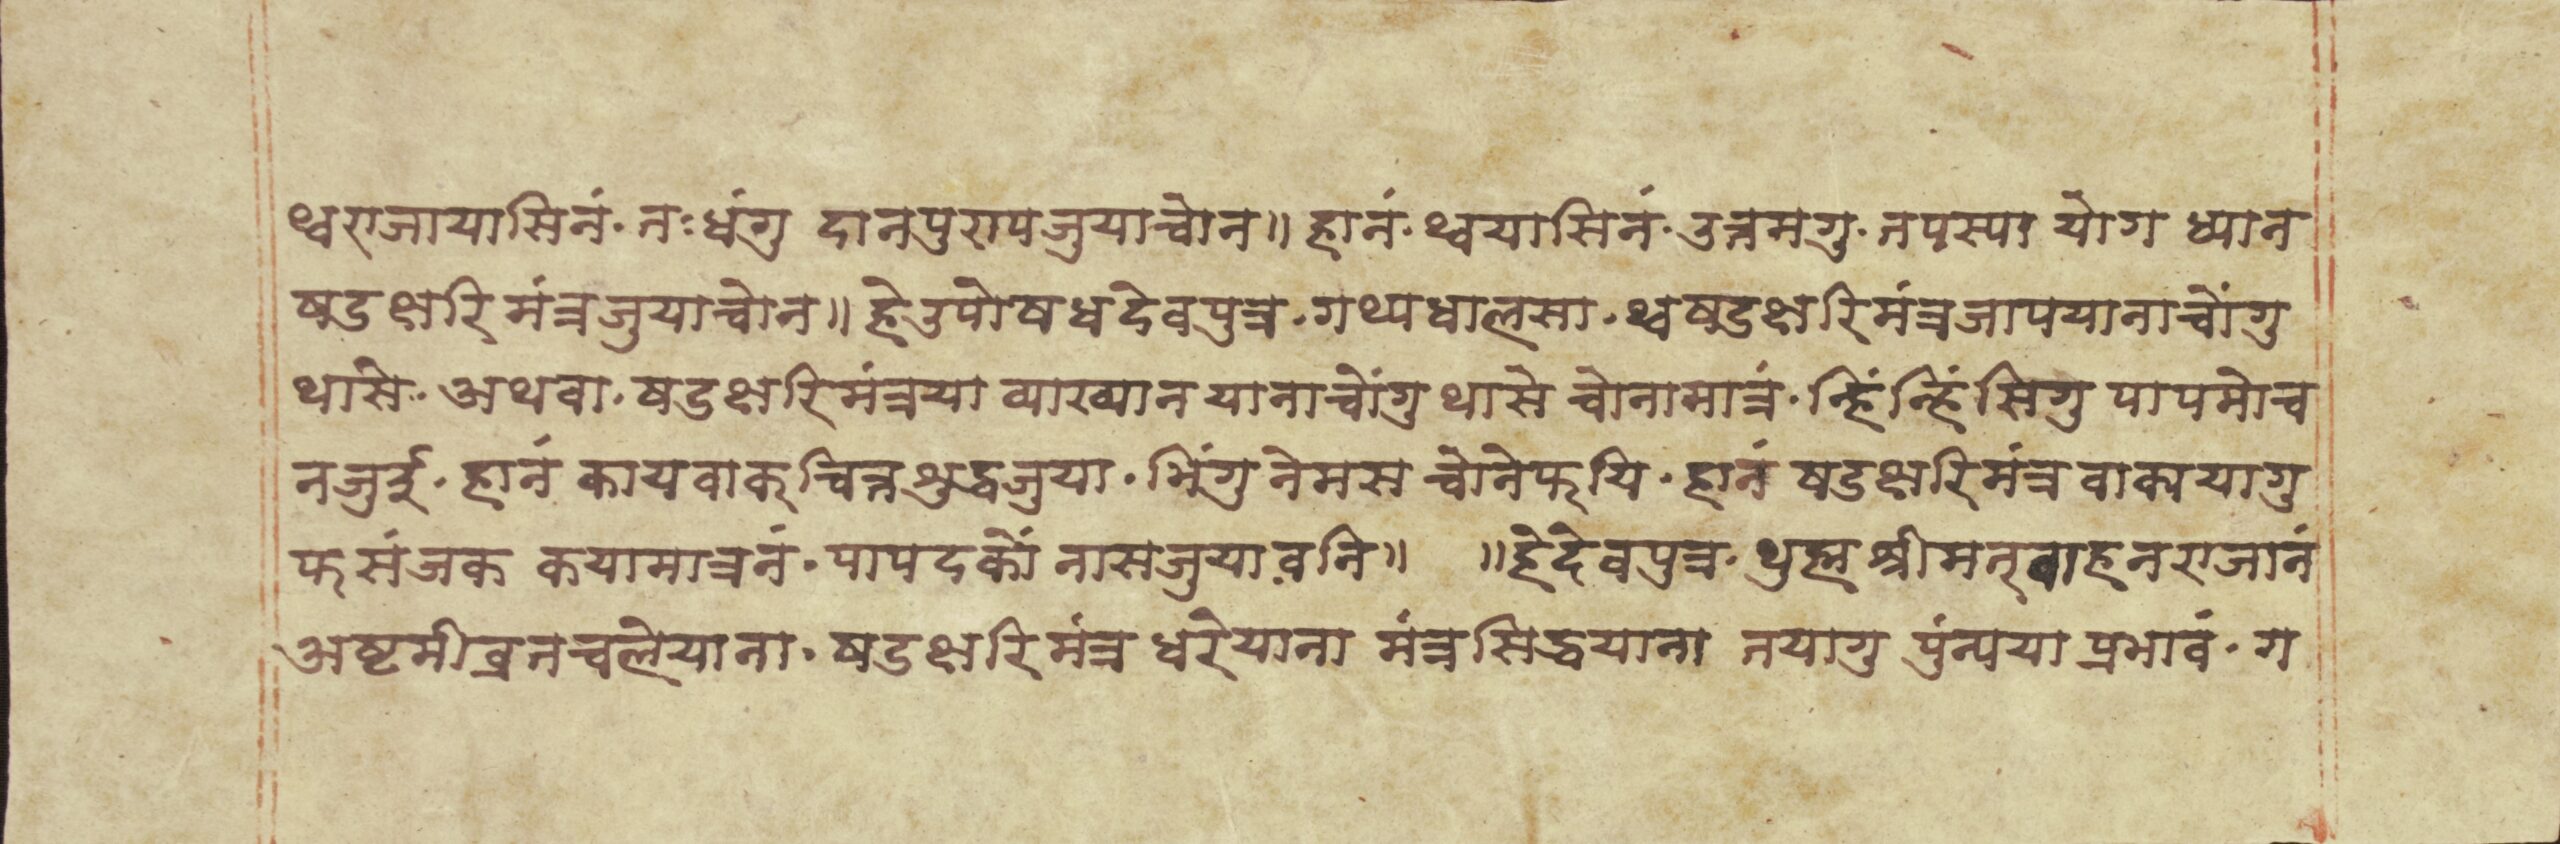 थ्वराजायासिनं · तःधंगु दानपुराप जुयाच्वोन॥ हानं · थ्वयासिनं · उत्तमगु · तपस्या योग ध्यान
षडक्षरि मंत्र जुयाच्वोन॥ हे उपोषध देवपुत्र · गथ्यधालसा · थ्व षडक्षरिमंत्र जापयानाच्वोंगु
थासे · अथवा · षडक्षरिमंत्रया व्याख्यान यानाच्वोंगु थासे च्वोनामात्रं · न्हिंन्हिं सिगु पापमोच
न जुई · हानं कायवाक्चित्त शुद्ध जुया · भिंगु नेमस च्वोनेफयि · हानं षडक्षरिमंत्र वाक्ययागु
फसं जक कयामात्रनं · पाप दकों नास जुयावनि॥ ॥हे देवपुत्र · थुह्म श्रीमत्वाहन राजानं
अष्टमीव्रत चलेयाना · षडक्षरि मंत्र धरेयाना मंत्रसिद्धयाना तयागु पुंन्यया प्रभावं · ग